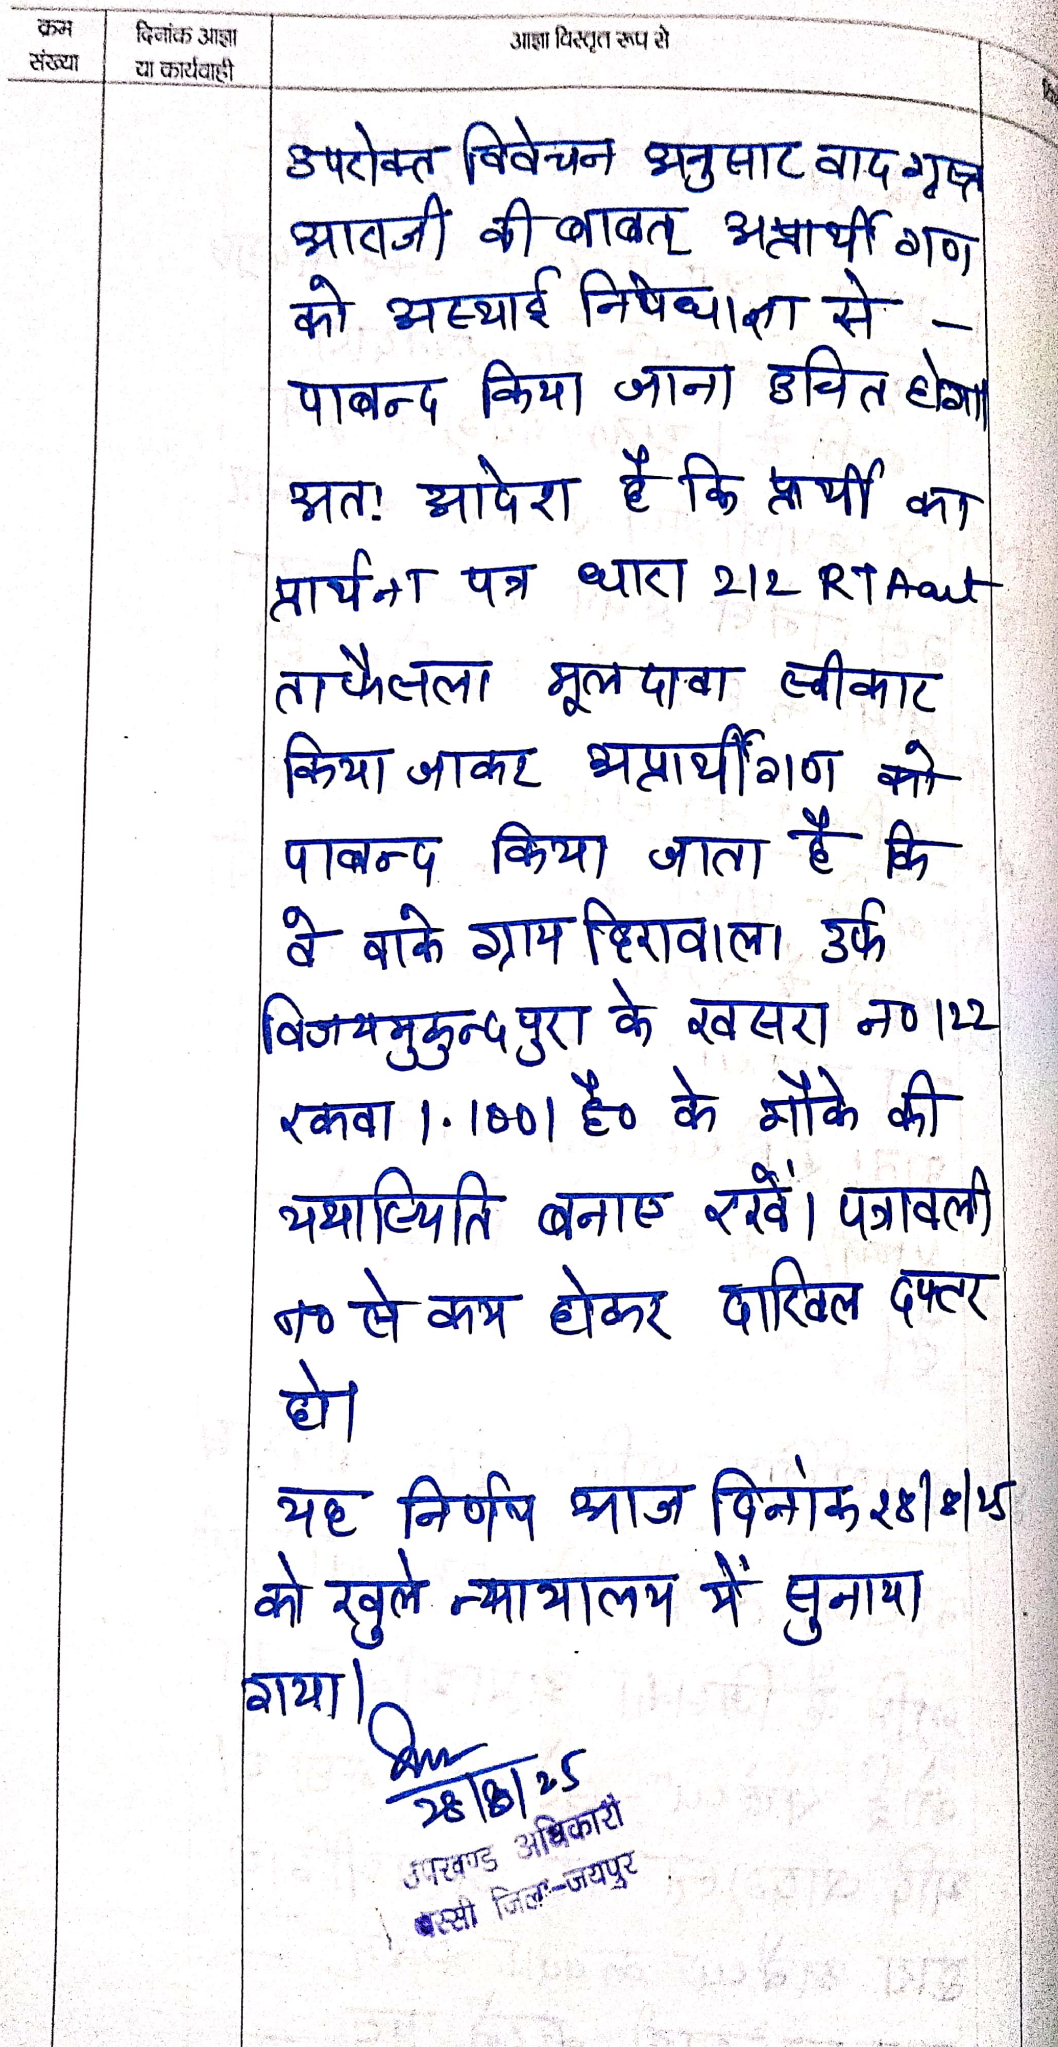 क्रम
संख्या
दिनांक आज्ञा
या कार्यवाही
आज्ञा विस्तृत रूप से
उपरोक्त विवेचन अनुसार वादग्रस्त
आराजी की बाबत् अप्रार्थी गण
को अस्थाई निषेधाज्ञा से -
पाबन्द किया जाना उचित होगा
अतः आदेश है कि प्रार्थी का
प्रार्थना पत्र धारा 212 RT Act
ताफैसला मूल दावा स्वीकार
किया जाकर अप्रार्थीगण को
पाबन्द किया जाता है कि
वे वाके ग्राम उर्फ
विजयमुकुन्दपुरा के खसरा न० 122
रकबा 1.1001 है० के मौके की
यथास्थिति बनाए रखें। पत्रावली
न० से कम होकर दाखिल दफ्तर
हो।
यह निर्णय आज दिनांक 28/8/25
को खुले न्यायालय में सुनाया
गया।
28/8/25
उपखण्ड अधिकारी
बस्सी जिला-जयपुर